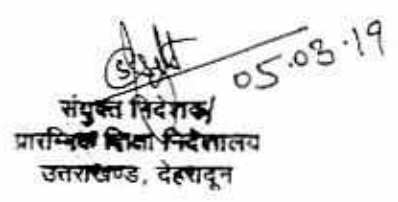 05.03.19
संयुक्त निदेशक/
प्रारम्भिक शिक्षा निदेशालय
उत्तराखण्ड, देहरादून